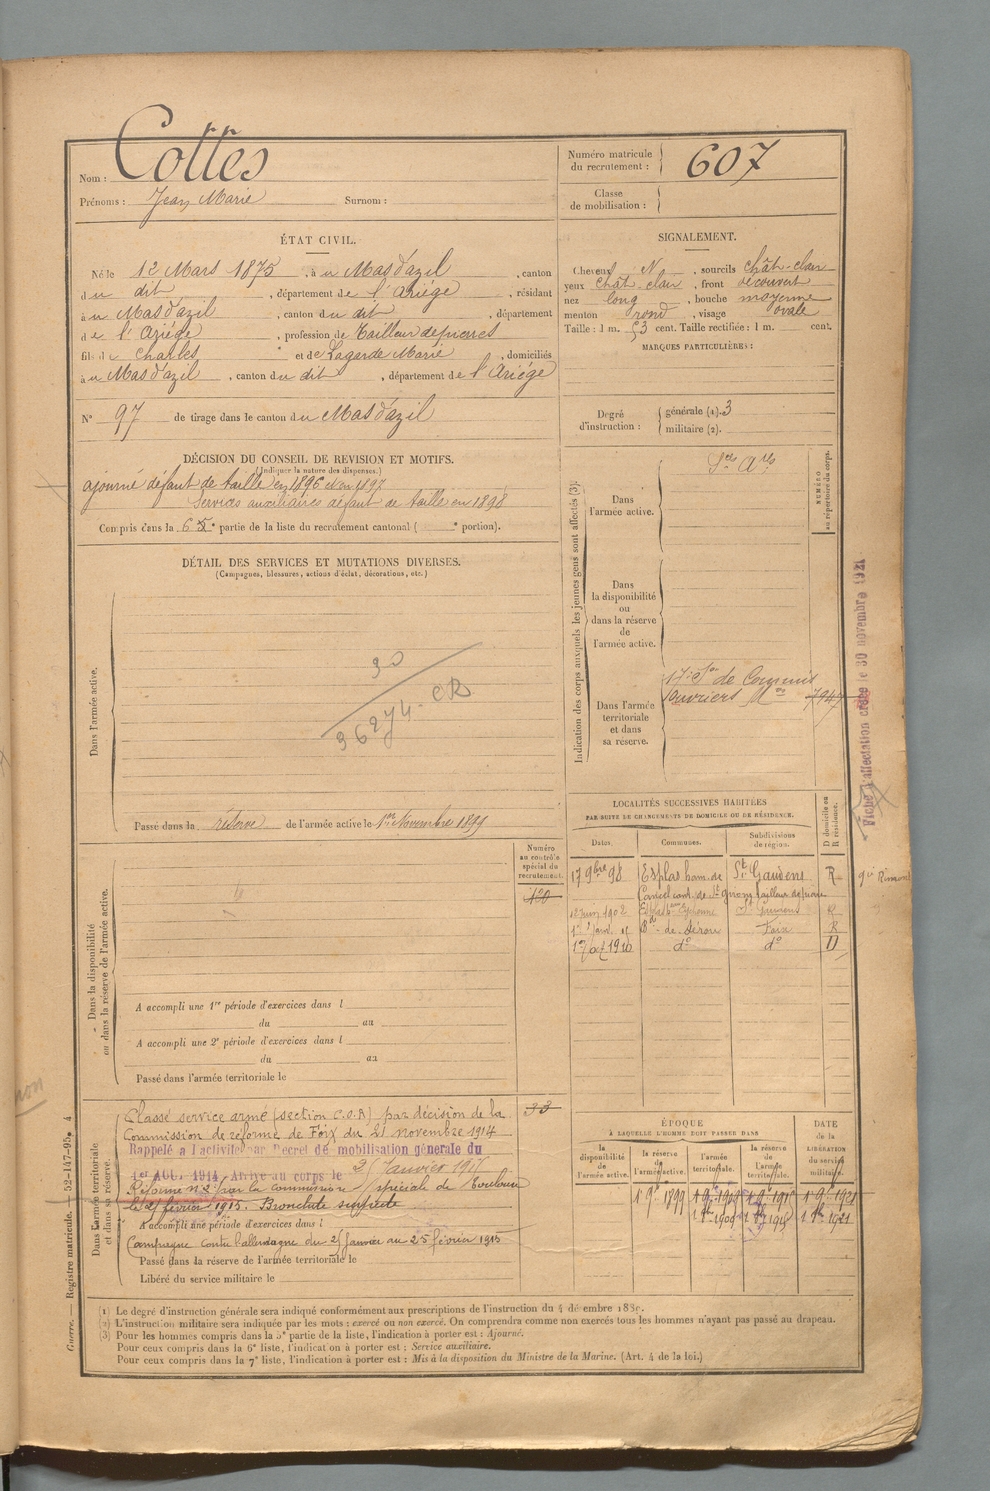 Nom : Cottes
Prénoms : Jean Marie Surnom :
Numéro matricule du recrutement : 607
Classe de mobilisation :
ÉTAT CIVIL.
Né le 12 Mars 1875, à u Mas d'azil, canton
du dit, département de l'Ariége, résidant
à u Mas d'azil, canton du dit, département
de l'Ariége, profession de Tailleur de pierres
fils de Charles et de Lagarde Marie, domiciliés
à u Mas d'azil, canton du dit, département de l'Ariége
N° 97 de tirage dans le canton du Mas d'azil
SIGNALEMENT.
Cheveux N, sourcils chât-clair
yeux chât clair, front découvert
nez long, bouche moyenne
menton rond, visage ovale
Taille : 1 m. 53 cent. Taille rectifiée : 1 m. cent.
MARQUES PARTICULIÈRES :
Degré d'instruction : générale (1). 3
militaire (2).
DÉCISION DU CONSEIL DE REVISION ET MOTIFS.
(Indiquer la nature des dispenses.)
ajourné défaut de taille en 1896 et en 1897
Services auxiliaires défaut de taille en 1898
Compris dans la 6 5e partie de la liste du recrutement cantonal ( e portion).
DÉTAIL DES SERVICES ET MUTATIONS DIVERSES.
(Campagnes, blessures, actions d'éclat, décorations, etc.)
Dans l'armée active.
30
36274. CR
Passé dans la réserve de l'armée active le 1er Novembre 1899
Indication des corps auxquels les jeunes gens sont affectés (3).
NUMÉRO au répertoire du corps.
Dans l'armée active.
Dans la disponibilité ou dans la réserve de l'armée active.
Dans l'armée territoriale et dans sa réserve.
17e Son de Commis
ouvriers 7947
Fiche d'affectation créée le 30 novembre 1921
Numéro au contrôle spécial du recrutement.
Dans la disponibilité ou dans la réserve de l'armée active.
A accompli une 1re période d'exercices dans l
du au
A accompli une 2e période d'exercices dans l
du au
Passé dans l'armée territoriale le
LOCALITÉS SUCCESSIVES HABITÉES
PAR SUITE DE CHANGEMENTS DE DOMICILE OU DE RÉSIDENCE.
Dates. Communes. Subdivisions de région. D domicile ou R résidence.
17 9bre 98 Esplas ham. de St Gaudens R
12 juin 1902 R
de Sérou Foix R
1er oct 1910 do do D
Dans l'armée territoriale et dans sa réserve.
33
Classé service armé (section C.O.A) par décision de la
Commission de réforme de Foix du 21 novembre 1914
Rappelé à l'activité par Décret de mobilisation générale du
1er AOU. 1914, Arrivé au corps le 25 Janvier 1915
Réformé n° 2 par la commission spéciale de Toulouse
le 25 février 1915. Bronchite suspecte
A accompli une période d'exercices dans l
Campagne contre l'allemagne du 25 janvier au 25 février 1915
Passé dans la réserve de l'armée territoriale le
Libéré du service militaire le
ÉPOQUE
À LAQUELLE L'HOMME DOIT PASSER DANS
la disponibilité de l'armée active. la réserve de l'armée active. l'armée territoriale. la réserve de l'armée territoriale.
DATE de la LIBÉRATION du service militaire.
1er 9bre 1899 1er 9bre 1909 1er 9bre 1915 1er 9bre 1921
(1) Le degré d'instruction générale sera indiqué conformément aux prescriptions de l'instruction du 4 décembre 1889.
(2) L'instruction militaire sera indiquée par les mots : exercé ou non exercé. On comprendra comme non exercés tous les hommes n'ayant pas passé au drapeau.
(3) Pour les hommes compris dans la 5e partie de la liste, l'indication à porter est : Ajourné.
Pour ceux compris dans la 6e liste, l'indication à porter est : Service auxiliaire.
Pour ceux compris dans la 7e liste, l'indication à porter est : Mis à la disposition du Ministre de la Marine. (Art. 4 de la loi.)
Guerre. — Registre matricule. — 52-147-95. 4